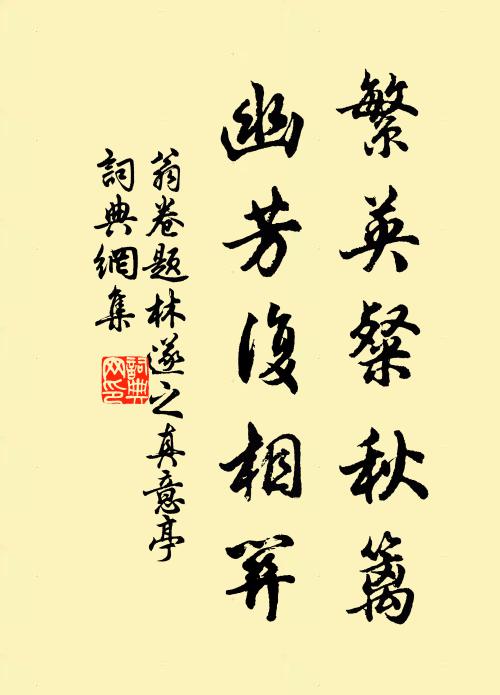 繁英粲秋篱
幽芳復相幷
翁卷題林遂之真意亭
詞典網集
詞典
网印